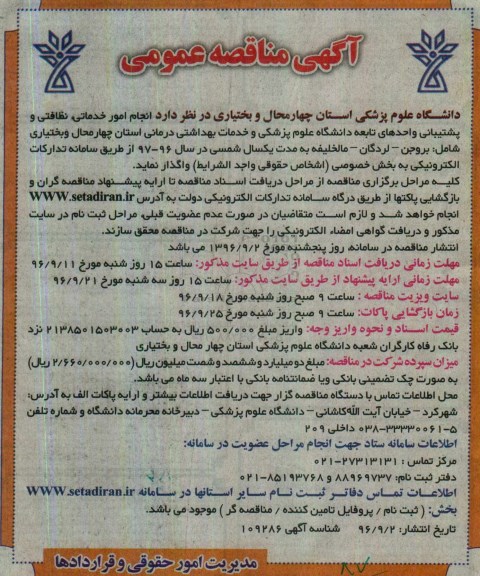 آگهی مناقصه عمومی
دانشگاه علوم پزشکی استان چهارمحال و بختیاری در نظر دارد انجام امور خدماتی، نظافتی و
پشتیبانی واحدهای تابعه دانشگاه علوم پزشکی و خدمات بهداشتی درمانی استان چهارمحال وبختیاری
شامل: بروجن - لردگان - مالخلیفه به مدت یکسال شمسی در سال ۹۶-۹۷ از طریق سامانه تدارکات
الکترونیکی به بخش خصوصی (اشخاص حقوقی واجد الشرایط) واگذار نماید.
کلیه مراحل برگزاری مناقصه از مراحل دریافت اسناد مناقصه تا ارایه پیشنهاد مناقصه گران و
بازگشایی پاکتها از طریق درگاه سامانه تدارکات الکترونیکی دولت به آدرس WWW.setadiran.ir
انجام خواهد شد و لازم است متقاضیان در صورت عدم عضویت قبلی، مراحل ثبت نام در سایت
مذکور و دریافت گواهی امضاء الکترونیکی را جهت شرکت در مناقصه محقق سازند.
انتشار مناقصه در سامانه، روز پنجشنبه مورخ ۱۳۹۶/۹/۲ می باشد
مهلت زمانی دریافت اسناد مناقصه از طریق سایت مذکور: ساعت ۱۵ روز شنبه مورخ ۹۶/۹/۱۱
مهلت زمانی ارایه پیشنهاد از طریق سایت مذکور: ساعت ۱۵ روز سه شنبه مورخ ۹۶/۹/۲۱
سایت ویزیت مناقصه : ساعت ۹ صبح روز شنبه مورخ ۹۶/۹/۱۸
زمان بازگشایی پاکات: ساعت ۹ صبح روز شنبه مورخ ۹۶/۹/۲۵
قیمت اسناد و نحوه واریز وجه: واریز مبلغ ۵۰۰/۰۰۰ ریال به حساب ۲۱۳۸۵۰۱۵۰۳۰۰۳ نزد
بانک رفاه کارگران شعبه دانشگاه علوم پزشکی استان چهار محال و بختیاری
میزان سپرده شرکت در مناقصه: مبلغ دو میلیارد و ششصد و شصت میلیون ریال (۲/۶۶۰/۰۰۰/۰۰۰ ریال)
به صورت چک تضمینی بانکی ویا ضمانتنامه بانکی با اعتبار سه ماه می باشد.
محل اطلاعات تماس با دستگاه مناقصه گزار جهت دریافت اطلاعات بیشتر و ارایه پاکات الف به آدرس:
شهرکرد - خیابان آیت الله کاشانی - دانشگاه علوم پزشکی - دبیرخانه محرمانه دانشگاه و شماره تلفن
۵-۰۳۸-۳۳۳۳۰۰۶۱ داخلی ۲۰۹
اطلاعات سامانه ستاد جهت انجام مراحل عضویت در سامانه:
مرکز تماس : ۲۷۳۱۳۱۳۱-۰۲۱
دفتر ثبت نام: ۸۸۹۶۹۷۳۷ و ۸۵۱۹۳۷۶۸-۰۲۱
اطلاعات تماس دفاتر ثبت نام سایر استانها در سامانه WWW.setadiran.ir
بخش: ( ثبت نام / پروفایل تامین کننده / مناقصه گر ) موجود می باشد.
تاریخ انتشار: ۹۶/۹/۲ شناسه آگهی ۱۰۹۲۸۶
مدیریت امور حقوقی و قراردادها